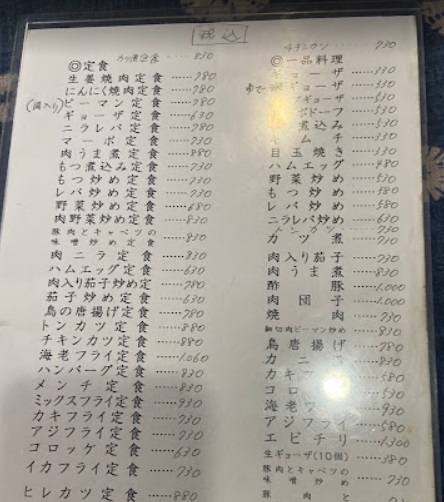 税込
カツ煮定食 830
◎定食
生姜焼肉定食 780
にんにく焼肉定食 780
(肉入り)ピーマン定食 780
ギョーザ定食 630
ニラレバ定食 780
マーボ定食 730
肉うま煮定食 880
もつ煮込み定食 730
もつ炒め定食 730
レバ炒め定食 730
野菜炒め定食 680
肉野菜炒め定食 830
豚肉とキャベツの
味噌炒め定食 830
肉ニラ定食 830
ハムエッグ定食 630
肉入り茄子炒め定 780
茄子炒め定食 630
鳥の唐揚げ定食 780
トンカツ定食 880
チキンカツ定食 830
海老フライ定食 1,060
ハンバーグ定食 830
メンチ定食 830
ミックスフライ定食 930
カキフライ定食 730
アジフライ定食 730
コロッケ定食 630
イカフライ定食 730
ヒレカツ定食 880
チキンカツ 730
◎一品料理
ギョーザ 330
ギョーザ 330
ギョーザ 530
ドーフ 530
煮込み 530
キムチ 330
目玉焼き 330
ハムエッグ 480
野菜炒め 530
もつ炒め 580
レバ炒め 580
ニラレバ炒め 630
トンカツ 730
カツ煮 730
肉入り茄子 730
肉うま煮 830
酢豚 1,000
肉団子 1,000
焼肉 730
細切肉ピーマン炒め 830
鳥唐揚げ 780
カニ
カキフ 580
コロ 530
海老 930
アジフラ 580
エビチリ 1,300
生ギョーザ(10個) 580
豚肉とキャベツの
味噌炒め 730